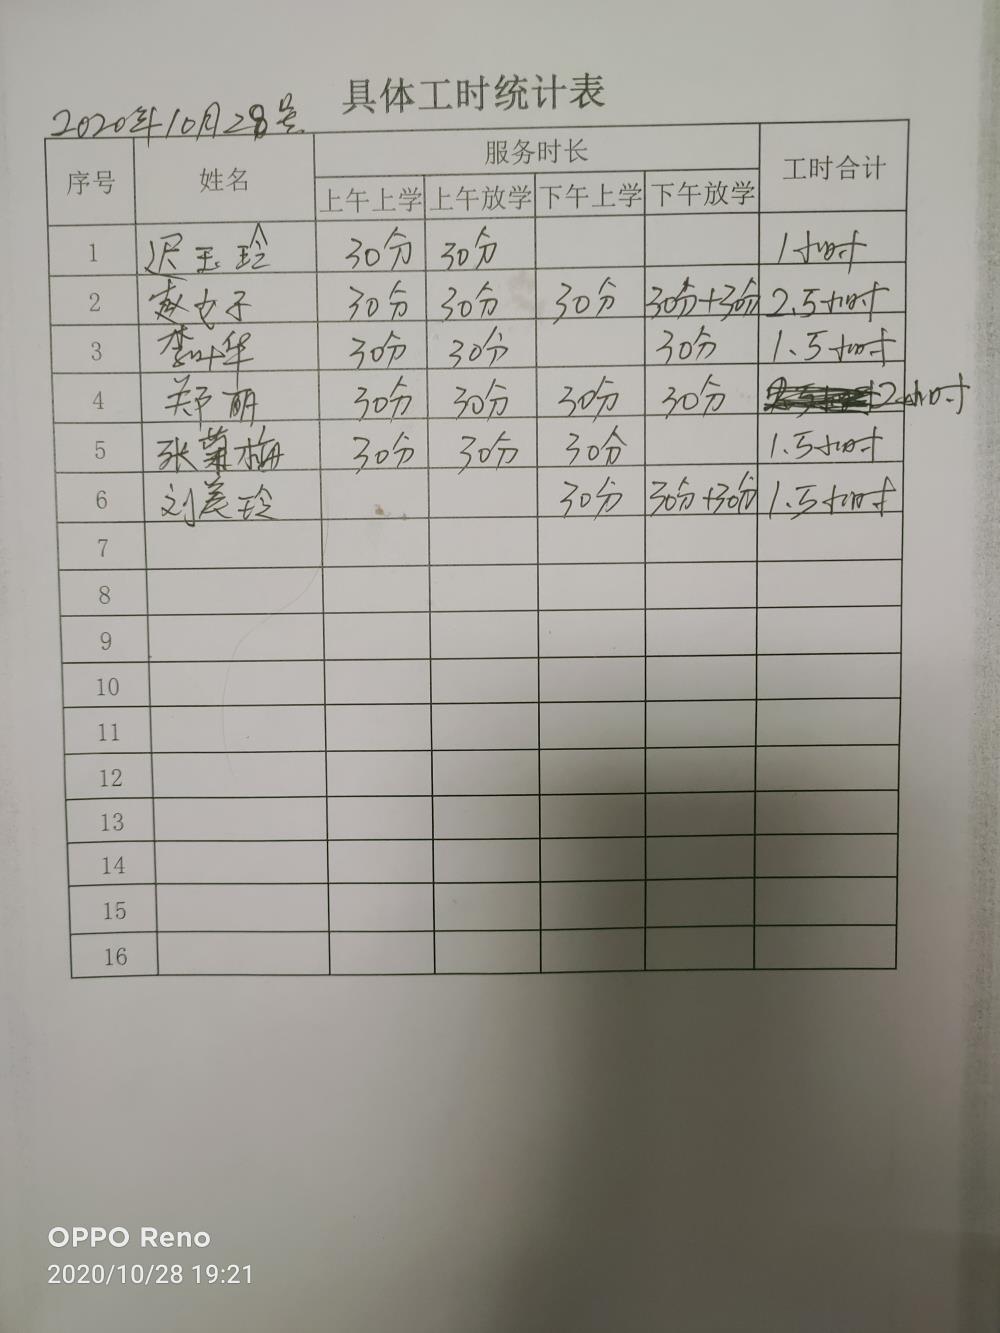 具体工时统计表
2020年10月28号
序号 姓名 服务时长 工时合计
上午上学 上午放学 下午上学 下午放学
1 迟玉玲 30分 30分 1小时
2 赵也子 30分 30分 30分 30分+30分 2.5小时
3 李叶华 30分 30分 30分 1.5小时
4 郑丽 30分 30分 30分 30分 2小时
5 张菊梅 30分 30分 30分 1.5小时
6 刘美玲 30分 30分+30分 1.5小时
7
8
9
10
11
12
13
14
15
16
OPPO Reno
2020/10/28 19:21